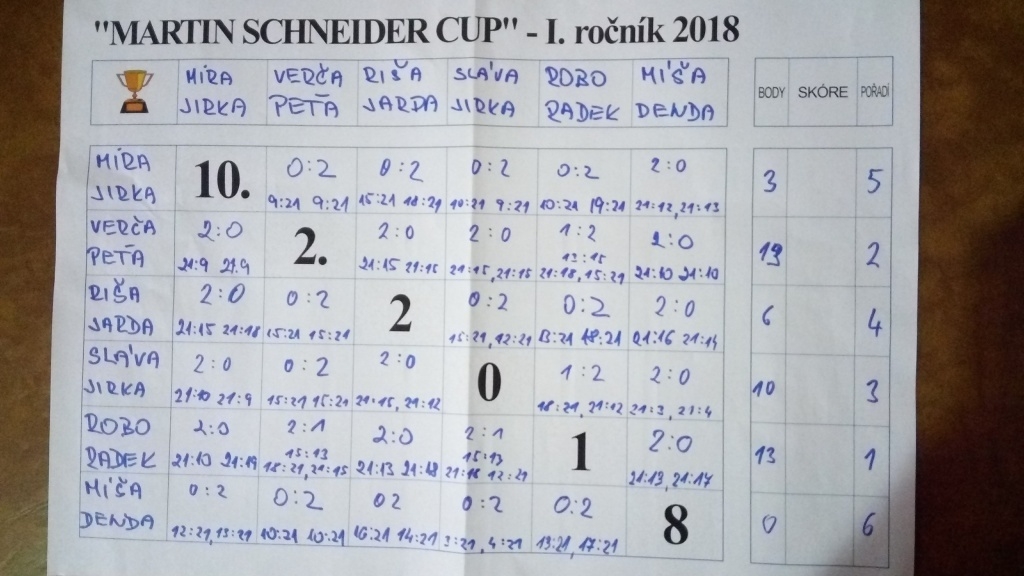 "MARTIN SCHNEIDER CUP" - I. ročník 2018
MÍRA VERČA RIŠA SLÁVA ROBO MÍŠA
JIRKA PEŤA JARDA JIRKA RADEK DENDA
BODY SKÓRE POŘADÍ
MÍRA 10. 0:2 0:2 0:2 0:2 2:0 3 5
JIRKA 9:21 9:21 15:21 18:21 10:21 9:21 10:21 19:21 21:12, 21:13
VERČA 2:0 2. 2:0 2:0 1:2 2:0 2
13:15
PEŤA 21:9 21:9 21:15 21:15 21:15, 21:15 21:18, 15:21 21:10 21:10
RIŠA 2:0 0:2 2 0:2 0:2 2:0 6 4
JARDA 21:15 21:18 15:21 15:21 15:21, 12:21 13:21 18:21 21:16 21:14
SLÁVA 2:0 0:2 2:0 0 1:2 2:0 10 3
JIRKA 21:10 21:9 15:21 15:21 21:15, 21:12 18:21, 21:12 21:3, 21:4
ROBO 2:0 2:1 2:0 2:1 1 2:0 13 1
15:13 15:13
RADEK 21:10 21:19 18:21, 21:15 21:13 21:18 21:18 12:21 21:13, 21:17
MÍŠA 0:2 0:2 0 2 0:2 0:2 8 0 6
DENDA 12:21, 13:21 10:21 10:21 16:21 14:21 3:21, 4:21 13:21, 17:21